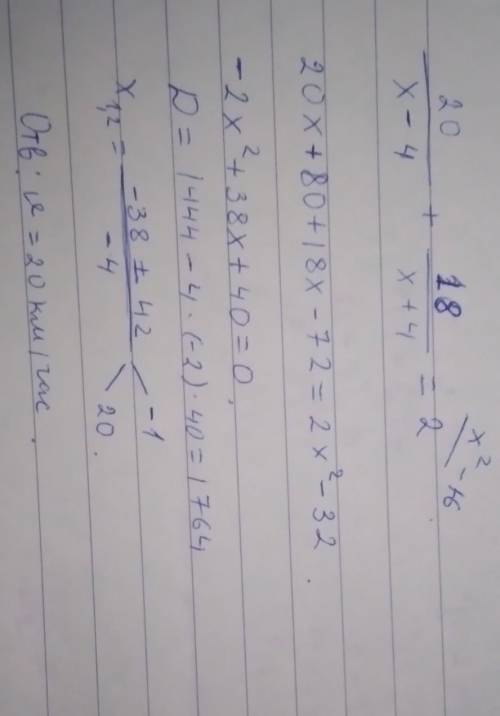 20/(x-4) + 18/(x+4) = 2 / x²-16
20x+80+18x-72=2x²-32.
-2x²+38x+40=0.
D=1444-4·(-2)·40=1764
x₁,₂ = (-38±42)/(-4) -1 20.
Отв: v=20км/час.